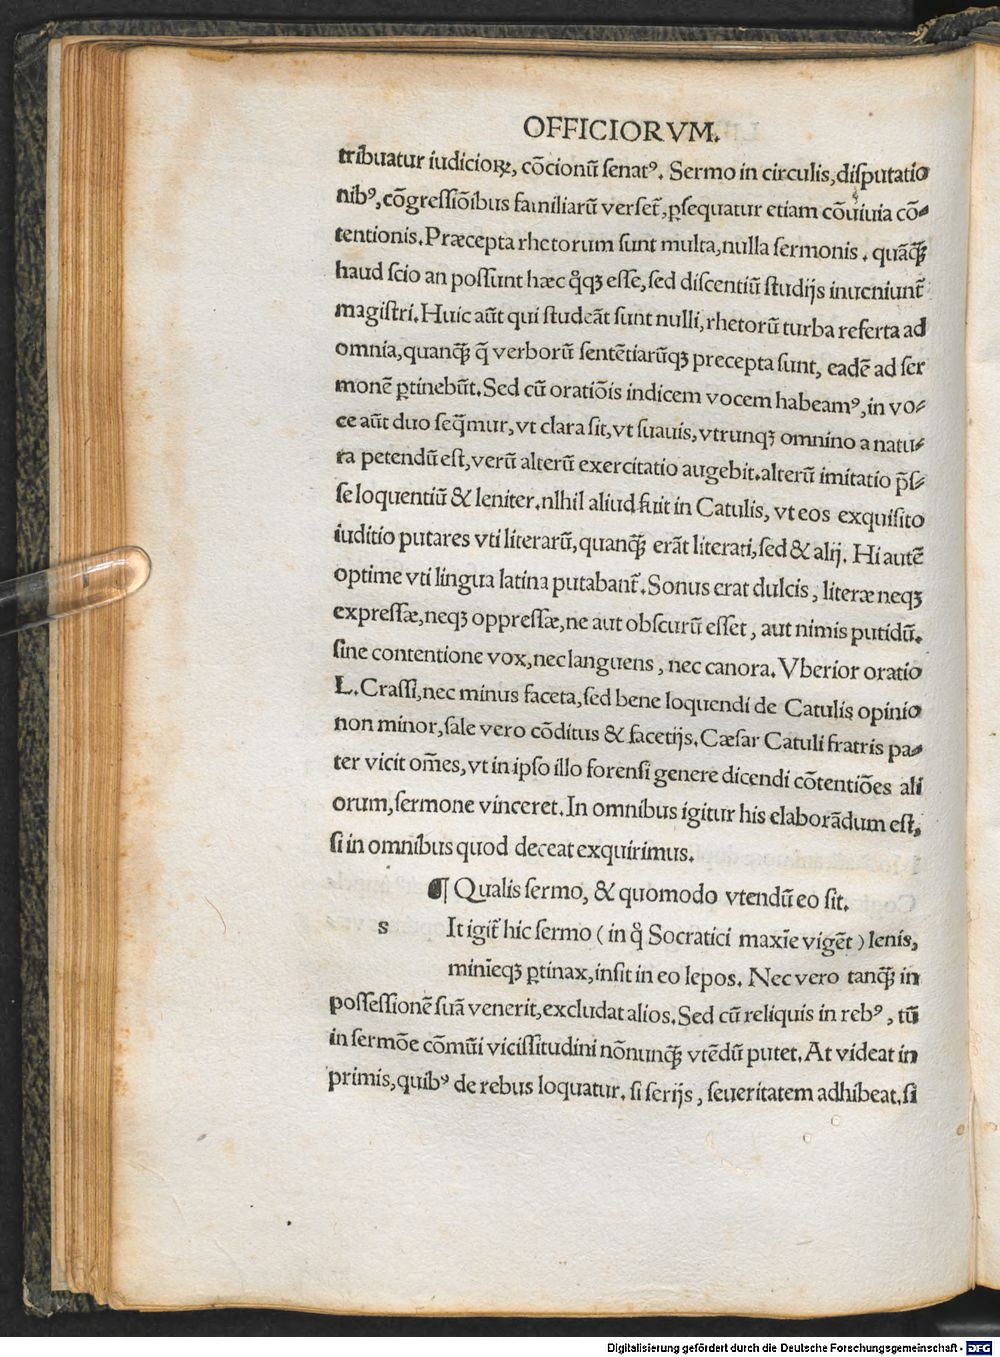 OFFICIORVM.
tribuatur iudicioꝝ, cōcionū senatꝰ. Sermo in circulis, disputatio
nibꝰ, cōgressiōibus familiarū verset᷑, ꝑsequatur etiam cōuiuia cō⸗
tentionis. Præcepta rhetorum sunt multa, nulla sermonis . quāqꝫ̄
haud scio an possunt hæc qͦqꝫ esse, sed discentiū studijs inueniunt᷑
magistri. Huic aūt qui studeāt sunt nulli, rhetorū turba referta ad
omnia, quanqꝫ̄ q̄ verborū sentētiarūqꝫ precepta sunt, eadē ad ser
monē ꝑtinebūt. Sed cū oratiōis indicem vocem habeamꝰ, in vo⸗
ce aūt duo seq̄mur, vt clara sit, vt suauis, vtrunqꝫ omnino a natu⸗
ra petendū est, verū alterū exercitatio augebit. alterū imitatio p̄s⸗
se loquentiū & leniter. nIhil aliud fuit in Catulis, vt eos exquisito
iuditio putares vti literarū, quanqꝫ̄ erāt literati, sed & alij. Hi autē
optime vti lingua latina putabant᷑. Sonus erat dulcis, literæ neqꝫ
expressæ, neqꝫ oppressæ, ne aut obscurū esset, aut nimis putidū.
sine contentione vox, nec languens, nec canora. Vberior oratio
L. Crassi, nec minus faceta, sed bene loquendi de Catulis opinio
non minor, sale vero cōditus & facetijs. Cæsar Catuli fratris pa⸗
ter vicit om̄es, vt in ipso illo forensi genere dicendi cōtentiōes ali
orum, sermone vinceret. In omnibus igitur his elaborādum est,
si in omnibus quod deceat exquirimus.
¶ Qualis sermo, & quomodo vtendū eo sit.
s It igit᷑ hic sermo ( in qͦ Socratici maxīe vigēt ) lenis,
minīeqꝫ ꝑtinax, insit in eo lepos. Nec vero tanqꝫ̄ in
possessionē suā venerit, excludat alios. Sed cū reliquis in rebꝰ, tū
in sermōe cōmūi vicissitudini nōnunqꝫ̄ vtēdū putet. At videat in
primis, quibꝰ de rebus loquatur. si serijs, seueritatem adhibeat. si
Digitalisierung gefördert durch die Deutsche Forschungsgemeinschaft - DFG